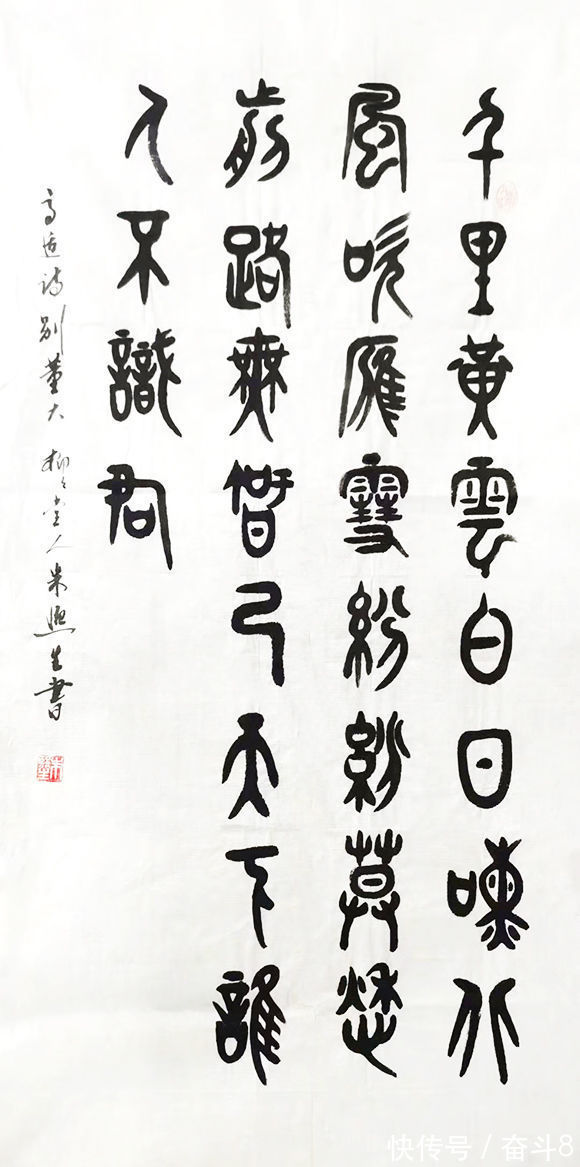 千里黃雲白日曛北
風吹雁雪紛紛莫愁
前路無智己天下誰
人不識君
高适诗别董大 堂人朱熙生書
快传号 / 奋斗8